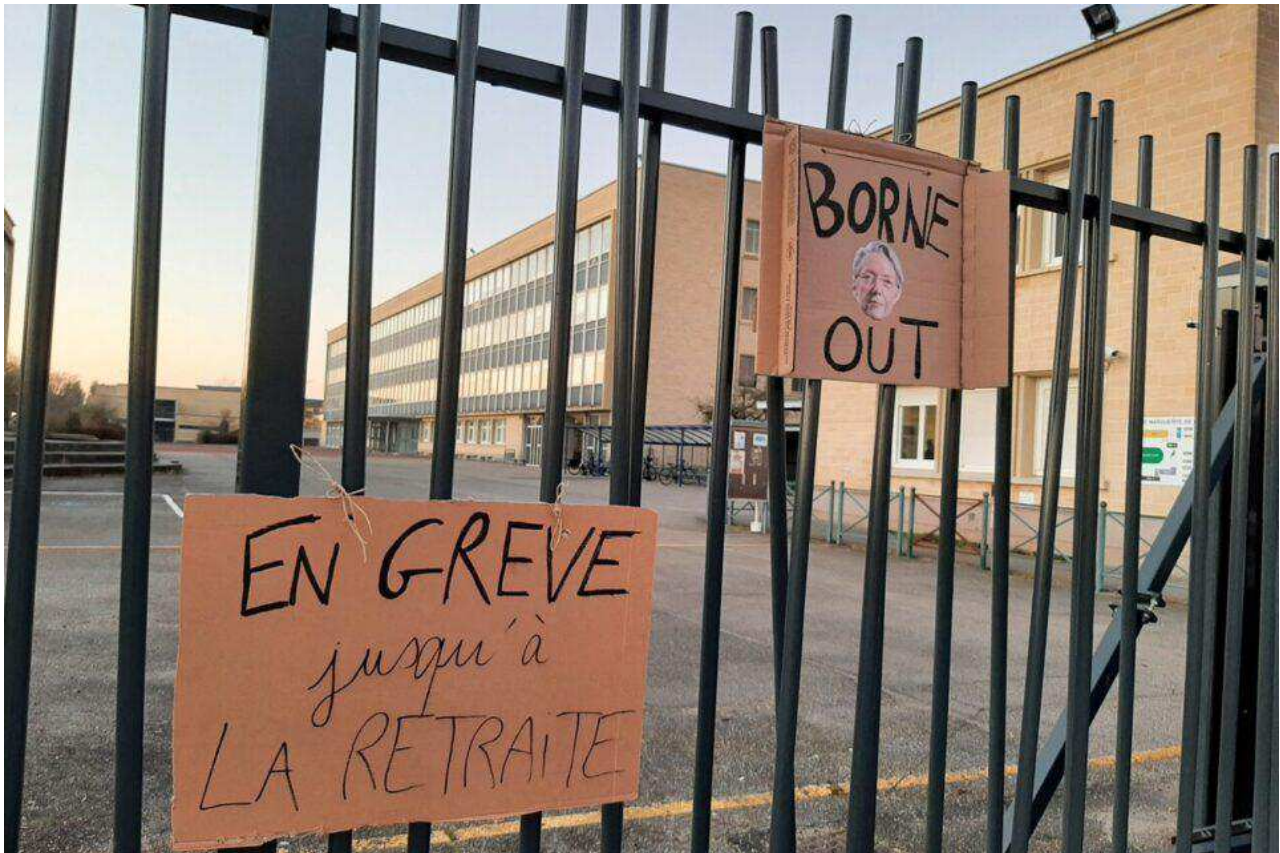 BORNE
OUT
EN GREVE
jusqu'à
LA RETRAITE